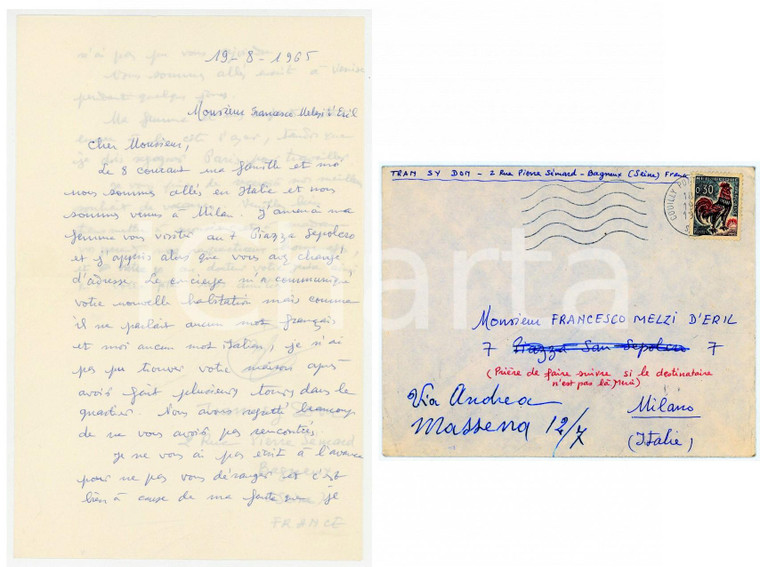 19-8-1965
Monsieur Francesco Melzi d'Eril
Cher Monsieur,
Le 8 courant ma famille et moi
nous sommes allés en Italie et nous
sommes venus à Milan. J'amenai ma
femme vous visiter au 7 Piazza Sepolcro
et j'appris alors que vous avez changé
d'adresse. Le concierge m'a communiqué
votre nouvelle habitation mais comme
il ne parlait aucun mot français
et moi aucun mot italien, je n'ai
pas pu trouver votre maison après
avoir fait plusieurs tours dans le
quartier. Nous avons regretté beaucoup
de ne vous avoir pas rencontrés
je ne vous ai pas écrit à l'avance
pour ne pas vous déranger et c'est
bien à cause de ma faute je
FRANCE
TRAM SY DOM - 2 Rue Pierre Sémard - Bagneux (Seine) France
0,30
COUILLY
Monsieur FRANCESCO MELZI D'ERIL
7 Piazza San Sepolcro 7
(Prière de faire suivre si le destinataire
n'est pas là, Merci)
Via Andrea
Massena 12/7
Milano
(Italie)
acharta